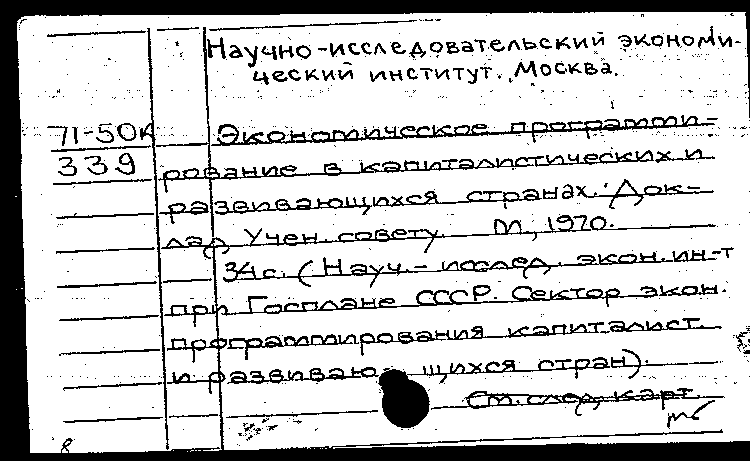 Научно-исследовательский экономи-
ческий институт. Москва.
71-50к Экономическое программи-
339 рование в капиталистических и
развивающихся странах. Док-
лад Учен. совету. М., 1970.
34 с. (Науч.-исслед. экон. ин-т
при Госплане СССР. Сектор экон.
программирования капиталист.
и развиваю щихся стран).
См. след. карт.
8